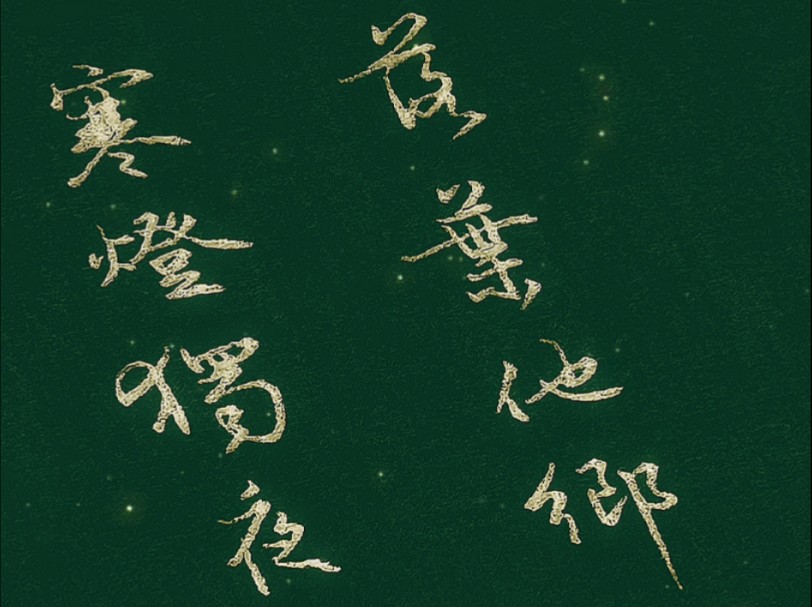 落葉他鄉
寒燈獨夜